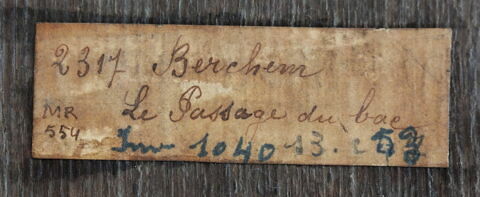 2317 Berchem
Le Passage du bac
MR
554
Inv 1040